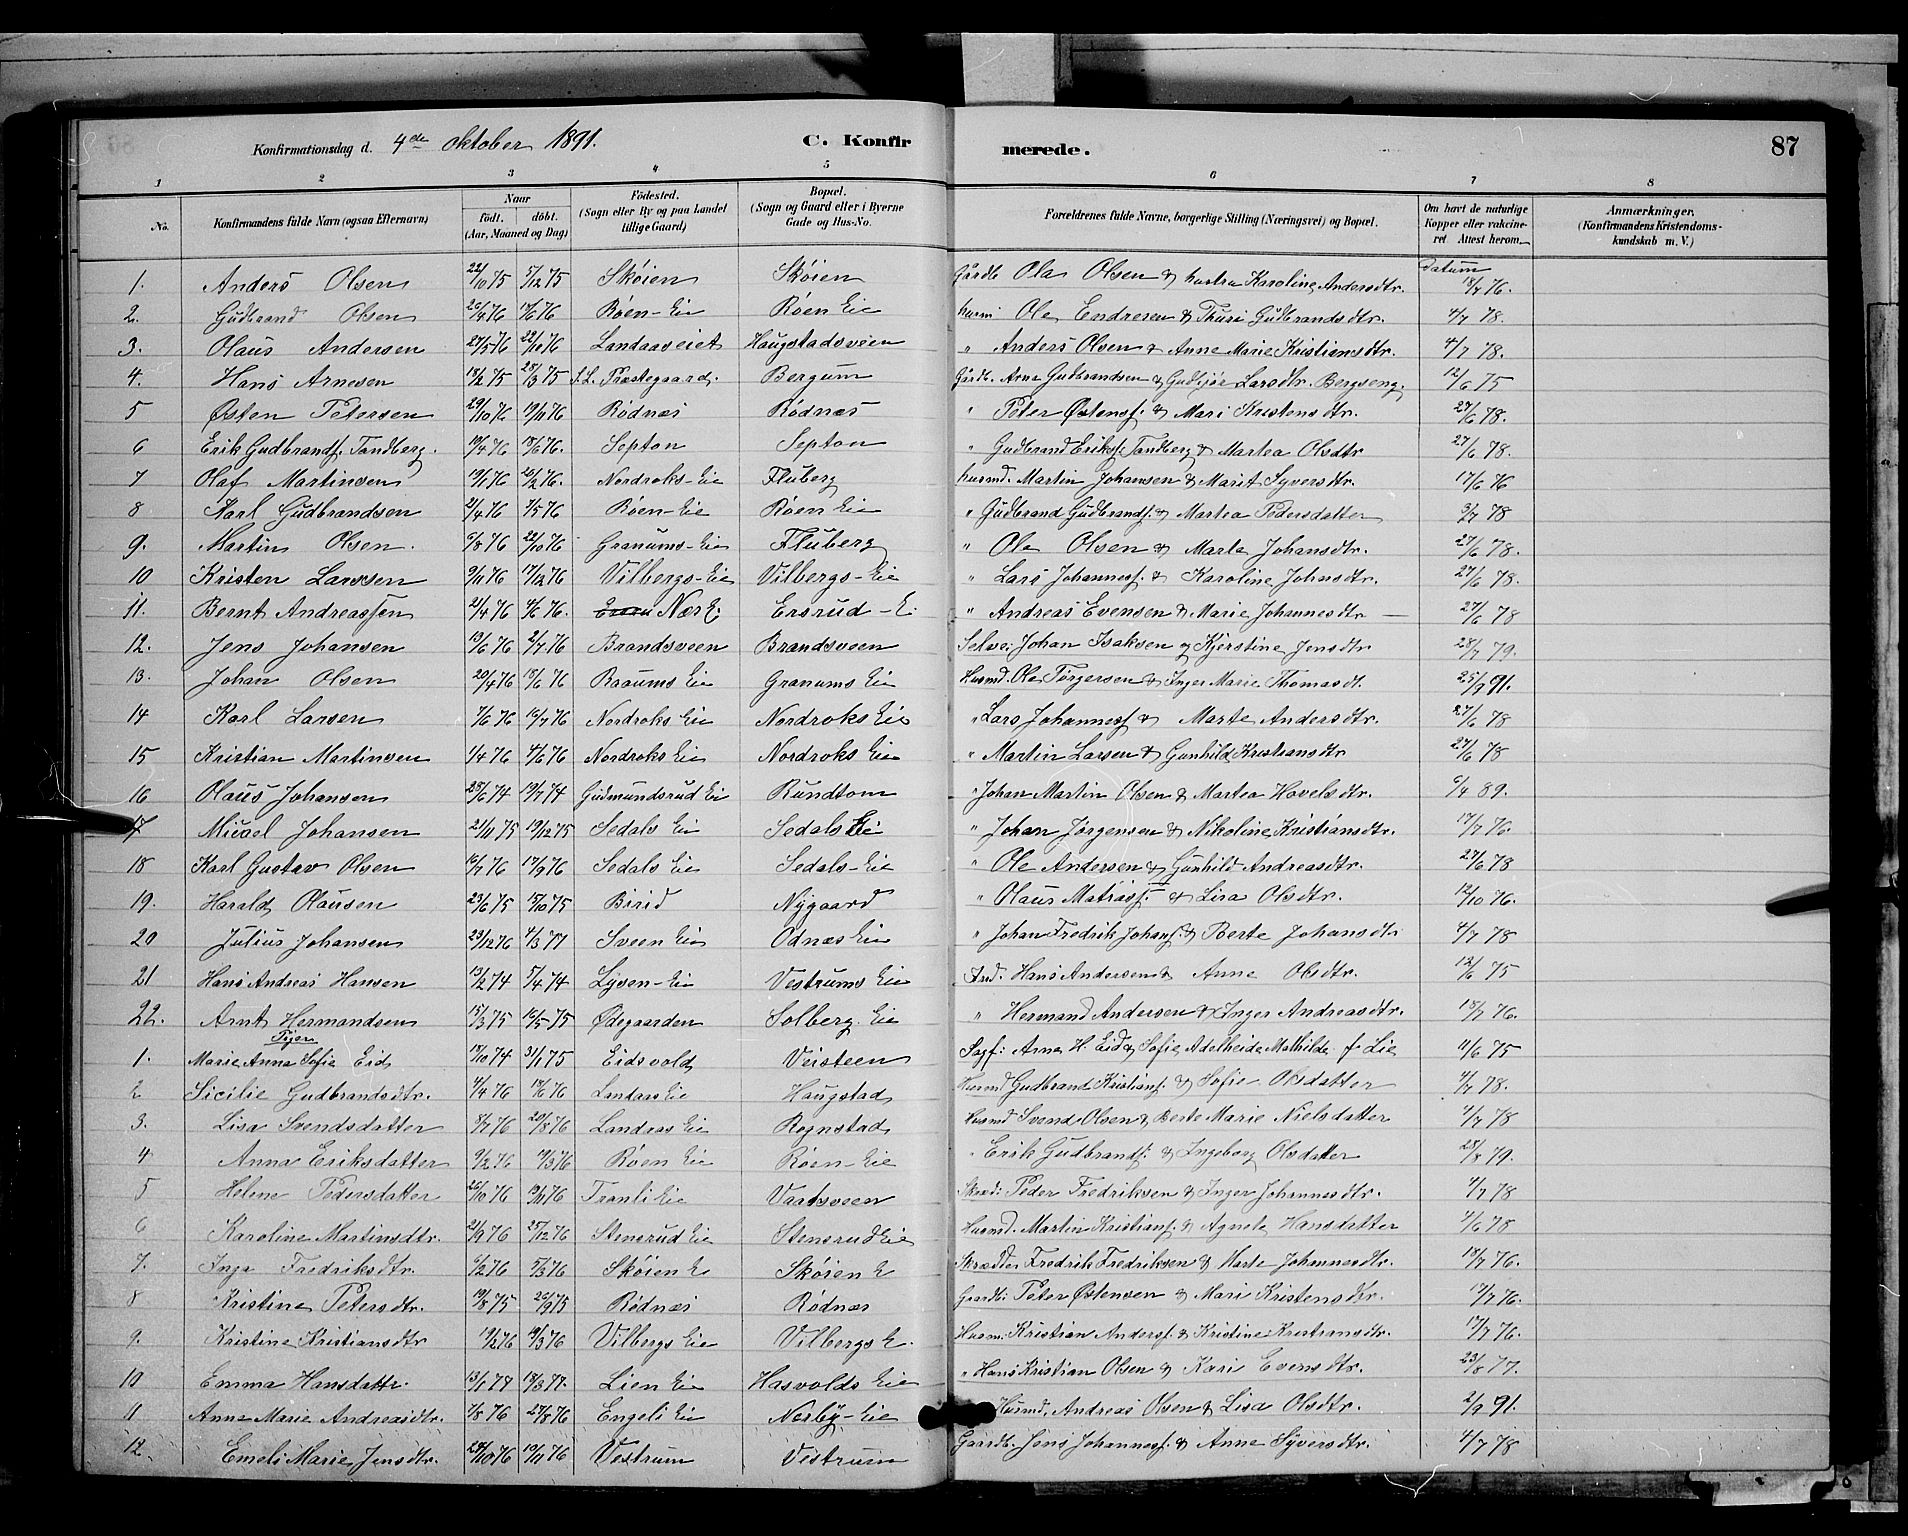 Konfirmationsdag d. 4de oktober 1891. C. Konfirmerede. 87
1 2 3 4 5 6 7 8
No. Konfirmandens fulde Navn (ogsaa Efternavn) Naar födt. döbt. (Aar, Maaned og Dag) Födested. (Sogn eller By og paa Landet tillige Gaard) Bopæl. (Sogn og Gaard eller i Byerne Gade og Hus-No. Forældrenes fulde Navne, borgerlige Stilling (Næringsvei) og Bopæl. Om havt de naturlige Kopper eller vakcineret Attest herom. Anmærkninger, (Konfirmandens Kristendomskundskab m. V.)
Datum
1. Anders Olsen 22/10 75 5/12 75 Skøien Skøien Gårdb Ole Olsen & hustru Karoline Andersdtr. 18/7 76.
2. Gudbrand Olsen 26/4 76 18/6 76 Røen-Eie Røen Eie husm Ole Endresen & Thuri Gudbrandsdtr. 4/7 78.
3. Olaus Andersen 27/5 76 22/10 76 Landaaseiet Haugstadsveen " Anders Olsen & Anne Marie Kristiansdtr. 4/7 78.
4. Hans Arnesen 18/2 75 28/3 75 S.L. Præstegaard. Bergum Gårdb. Arne Gudbrandsen & Larsdtr. Bergseng. 12/6 75
5 Østen Petersen 29/10 76 19/11 76 Rødnæs Rødnæs " Peter Østensf. & Mari Kristensdtr. 27/6 78.
6 Erik Gudbrandf. Tandberg. 19/4 76 18/6 76. Septon Septon " Gudbrand Eriksf. Tandberg & Martea Olsdtr 27/6 78.
7 Olaf Martinsen 19/1 76 20/2 76. Nordroks-Eie Fluberg husmd. Martin Johansen & Marit Syversdtr. 17/6 76
8 Karl Gudbrandsen 2/4 76 7/5 76 Røen-Eie Røen Eie " Gudbrand Gudbrandf. & Martea Pedersdatter 3/7 78
9. Martin Olsen. 6/8 76 22/10 76 Granums-Eie Fluberg " Ole Olsen & Marte Johansdtr. 27/6 78.
10 Kristen Larssen 9/11 76 17/12 76 Vilbergs-Eie Vilbergs-Eie " Lars Johannesf. & Karoline Johnsdtr. 27/6 78.
11. Bernt Andreassen 2/4 76 4/6 76. Nær E. Ersrud-E. " Andreas Evensen & Marie Johannesdtr 27/6 78
12. Jens Johansen 13/6 76 2/7 76 Brandsveen Brandsveen Selvei Johan Isaksen & Kjerstine Jensdtr 28/7 79.
13. Johan Olsen 20/4 76 18/6 76 Baaums Eie Granums Eie Husmd. Ole Torgersen & Inger Marie Thomasdt. 25/9 91.
14 Karl Larsen 7/6 76 16/7 76 Nordroks Eie Nordroks Eie " Lars Johannesf & Marte Andersdtr. 27/6 78
15 Kristian Martinsen 1/4 76 4/6 76 Nordroks Eie Nordroks Eie " Martin Larsen & Gunhild Kristiansdtr 27/6 78
16 Olaus Johansen 28/6 74 19/7 74 Gudmundsrud Eie Rundtom " Johan Martin Olsen & Martea Hovelsdtr. 6/4 89.
17 Micael Johansen 21/11 75 19/12 75 Sedals Eie Sedals Eie " Johan Jørgensen & Nikoline Kristiansdtr. 17/7 76.
18 Karl Gustav Olsen 16/7 76 17/9 76 Sedals Eie Sedals-Eie " Ole Andersen & Gunhild Andreasdtr. 27/6 78
19. Harald Olausen 23/6 75 15/10 75 Birid Nygaard " Olaus Matiasf. & Lisa Olsdtr. 12/10 76.
20 Julius Johansen 23/12 76 4/3 77 Sveen Eie Odnæs Eie " Johan Fredrik Johansf. & Berte Johansdtr 4/7 78
21 Hans Andreas Hansen 13/2 74 5/4 74 Lysen-Eie Vestrums Eie Ind. Hans Andersen & Anne Olsdtr. 12/6 75
22. Arnt Hermandsen 15/3 75 16/5 75 Ødegaarden Solberg Eie " Hermand Andersen & Inger Andreasdtr. 18/7 76.
Piger
1. Marie Anna Sofie Eid 18/10 74 31/1 75 Eidsvold Veisteen Sagf: Arne H. Eid & Sofie Adelheide Mathilde f Lie 11/6 75
2 Sicilie Gudbrandsdtr. 4/4 76 18/6 76 Landaas Eie Haugstad Husmd Gudbrand Kristiansf. & Sofie Olsdatter 4/7 78.
3. Lisa Svendsdatter 8/7 76 20/8 76 Landaas Eie Rognstad Husmd Svend Olsen & Berte Marie Nielsdatter 4/7 78
4 Anna Eriksdatter 9/2 76 19/3 76 Røen Eie Røen-Eie " Erik Gudbrandf. & Ingeborg Olsdatter 28/8 79.
5 Helene Pedersdatter 26/10 76 19/11 76 Tranli Eie Vaatsveen Skræd: Peder Fredriksen & Inger Johannesdtr. 4/7 78
6 Karoline Martinsdtr. 2/9 76 25/12 76 Stensrud Eie Stensrud Eie Husmd. Martin Kristiansf. & Agnete Hansdatter 4/6 78
7. Inga Fredriksdtr. 6/2 76 5/3 76 Skøien E Skøien E Skrædder Fredrik Fredriksen & Marte Johannesdtr. 18/7 76.
8 Kristine Petersdtr. 19/8 75 26/9 75 Rødnæs Rødnæs Gaardb: Peter Østensen & Mari Kristensdtr. 17/7 76.
9. Kristine Kristiansdtr 19/2 76 19/3 76 Vilbergs Eie Vilbergs E. Husm: Kristian Andersf. & Kristine Kristiansdtr. 17/7 76.
10 Emma Hansdattr. 13/1 77 18/3 77. Lien Eie Hasvolds Eie " Hans Kristian Olsen & Kari Evensdtr. 23/8 77.
11 Anne Marie Andreasdtr. 7/8 76 27/8 76 Engeli Eie Nerby-Eie Husmd. Andreas Olsen & Lisa Olsdtr. 2/9 91.
12. Emeli Marie Jensdtr. 28/10 76 19/11 76 Vestrum Vestrum Gaardb. Jens Johannesf. & Anne Syversdtr. 4/7 78